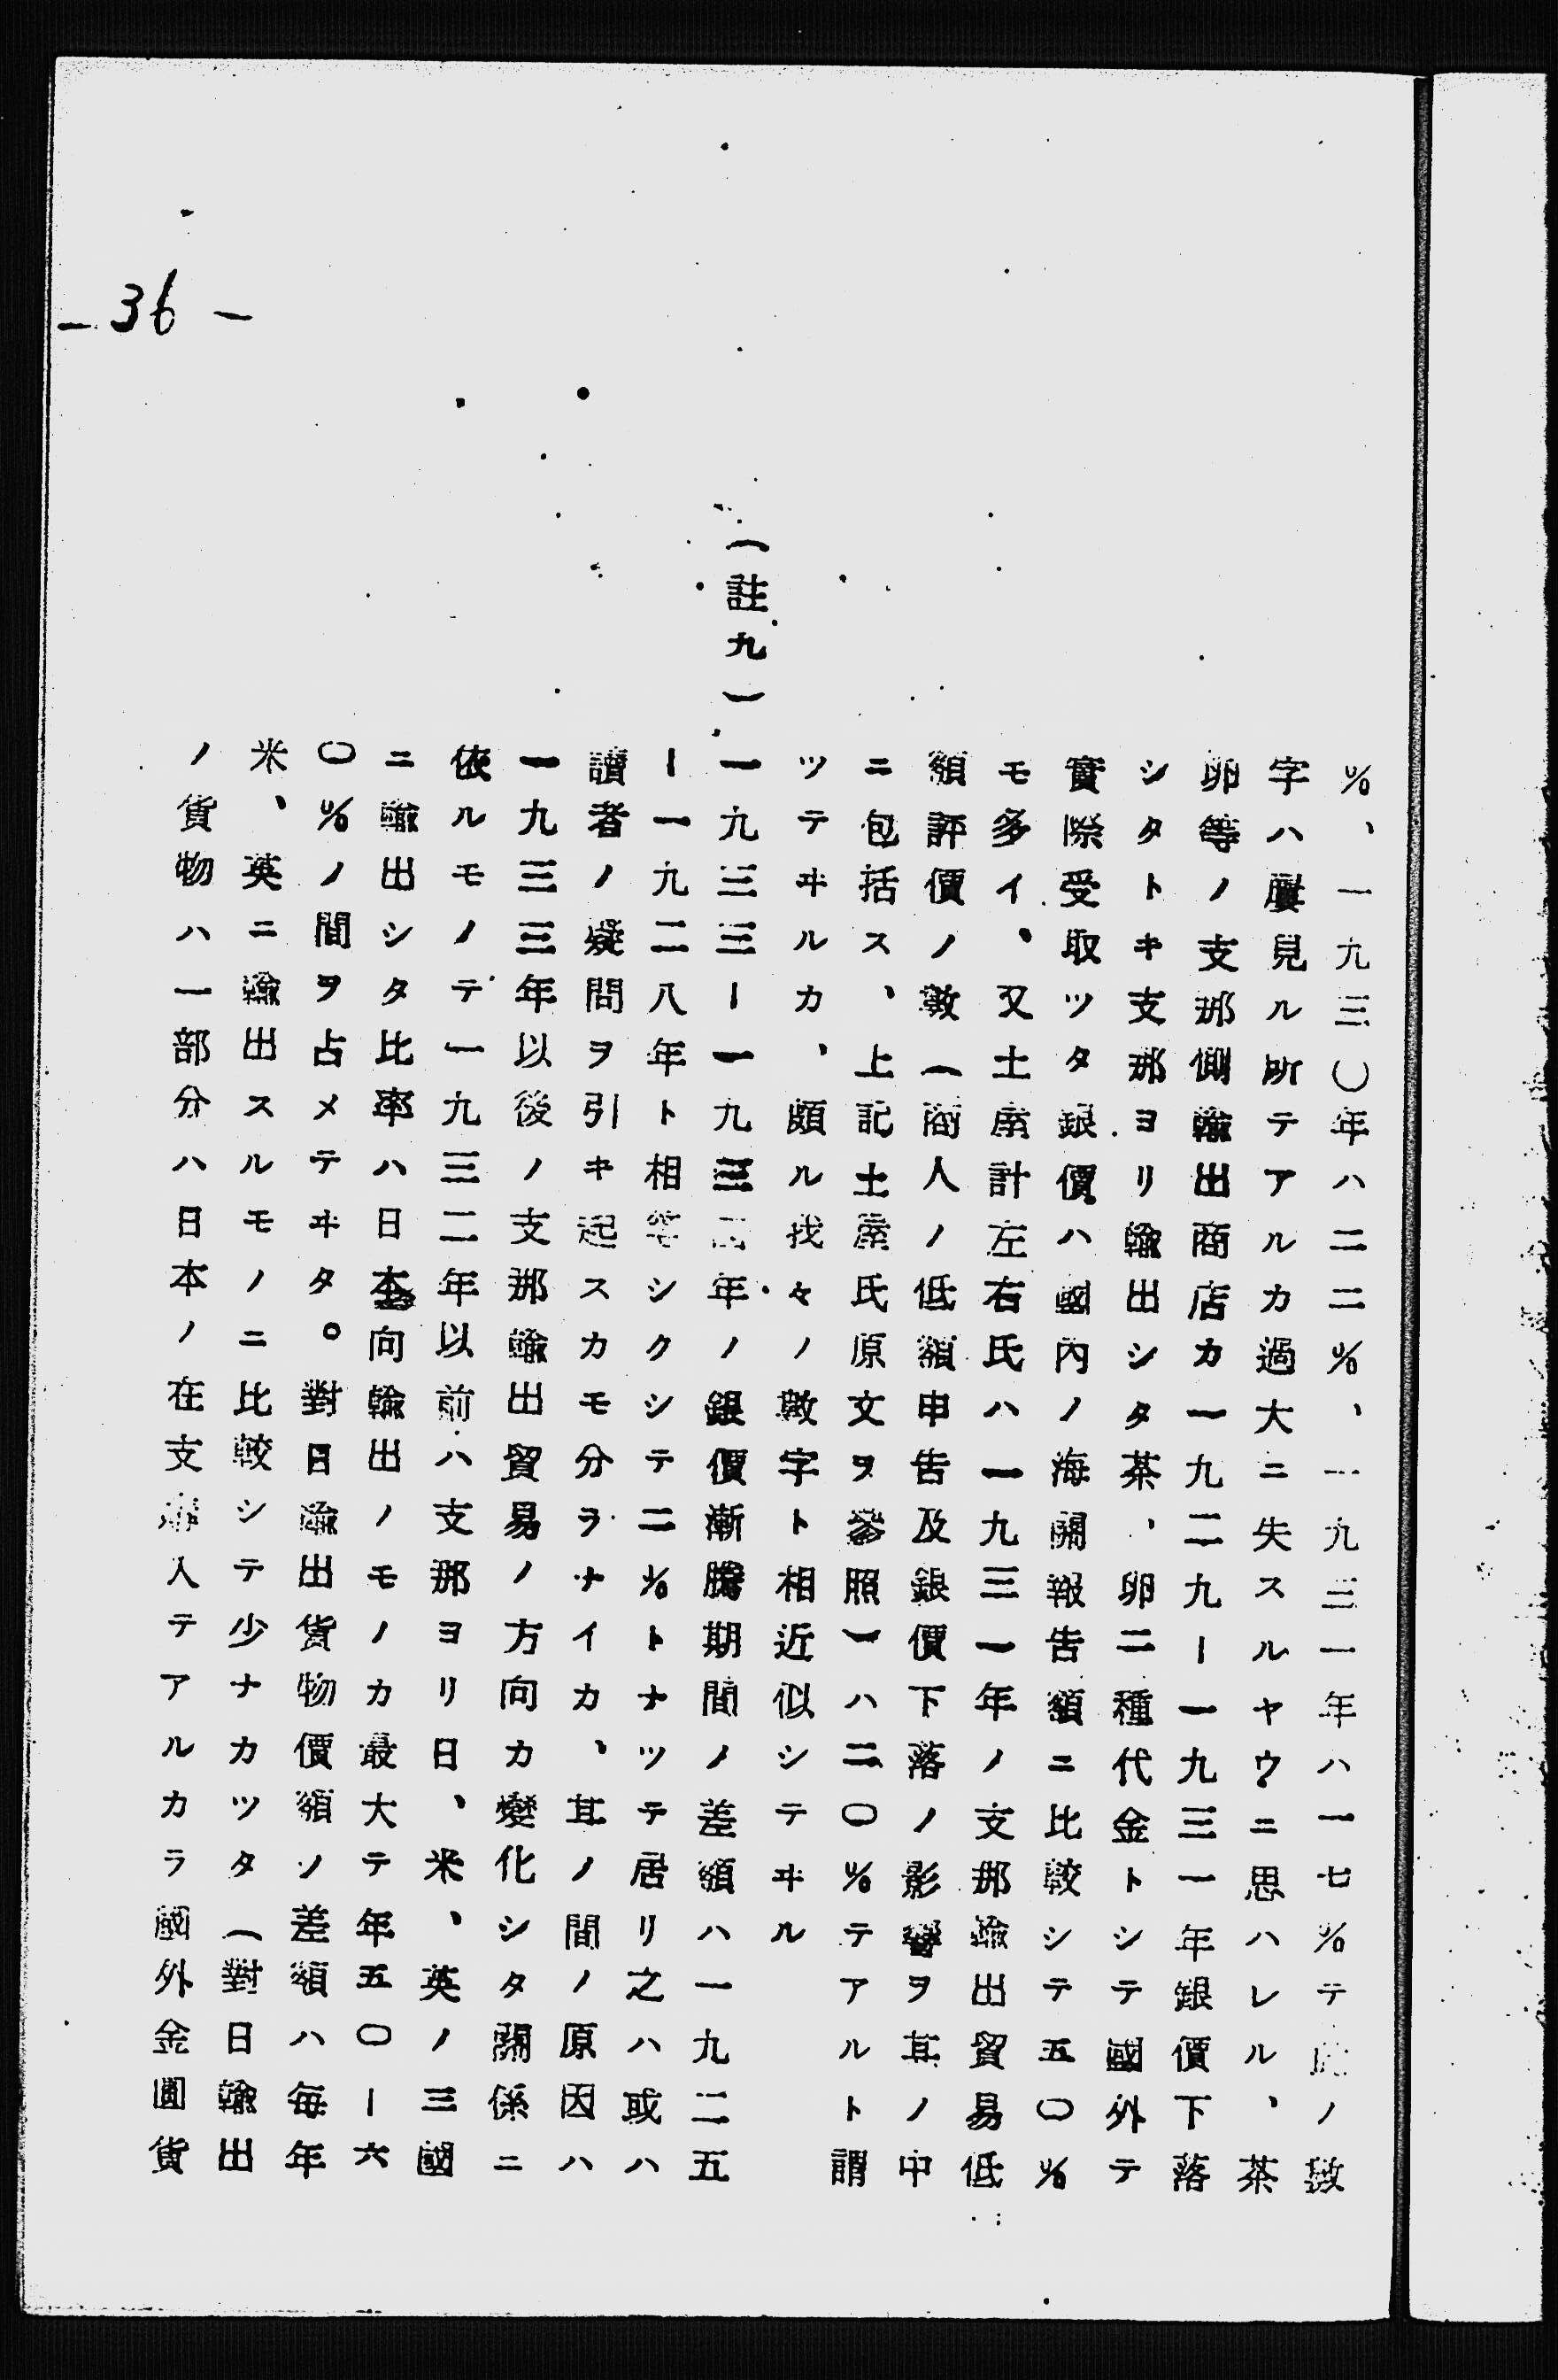 %、一九三〇年ハ二二%、一九三一年ハ一七%テ此ノ数
字ハ屢見ル所テアルカ過大ニ失スルヤウニ思ハレル、茶
卵等ノ支那側輸出商店カ一九二九ー一九三一年銀價下落
シタトキ支那ヨリ輸出シタ茶、卵二種代金トシテ國外テ
實際受取ツタ銀價ハ國內ノ海關報告額ニ比較シテ五〇%
モ多イ、又土屋計左右氏ハ一九三一年ノ支那輸出貿易低
額評價ノ数(商人ノ低額申告及銀價下落ノ影響ヲ其ノ中
ニ包括ス、上記土屋氏原文ヲ參照)ハ二〇%テアルト謂
ツテヰルカ、頗ル我々ノ数字ト相近似シテヰル
(註九)一九三三ー一九三四年ノ銀價漸騰期間ノ差額ハ一九二五
ー一九二八年ト相等シクシテ二%トナツテ居リ之ハ或ハ
讀者ノ疑問ヲ引キ起スカモ分ラナイカ、其ノ間ノ原因ハ
一九三三年以後ノ支那輸出貿易ノ方向カ變化シタ關係ニ
依ルモノテ一九三二年以前ハ支那ヨリ日、米、英ノ三國
ニ輸出シタ比率ハ日本向輸出ノモノカ最大テ年五〇ー六
〇%ノ間ヲ占メテヰタ。對日輸出貨物價額ノ差額ハ每年
米、英ニ輸出スルモノニ比較シテ少ナカツタ(對日輸出
ノ貨物ハ一部分ハ日本ノ在支商人テアルカラ國外金圓貨
-36-